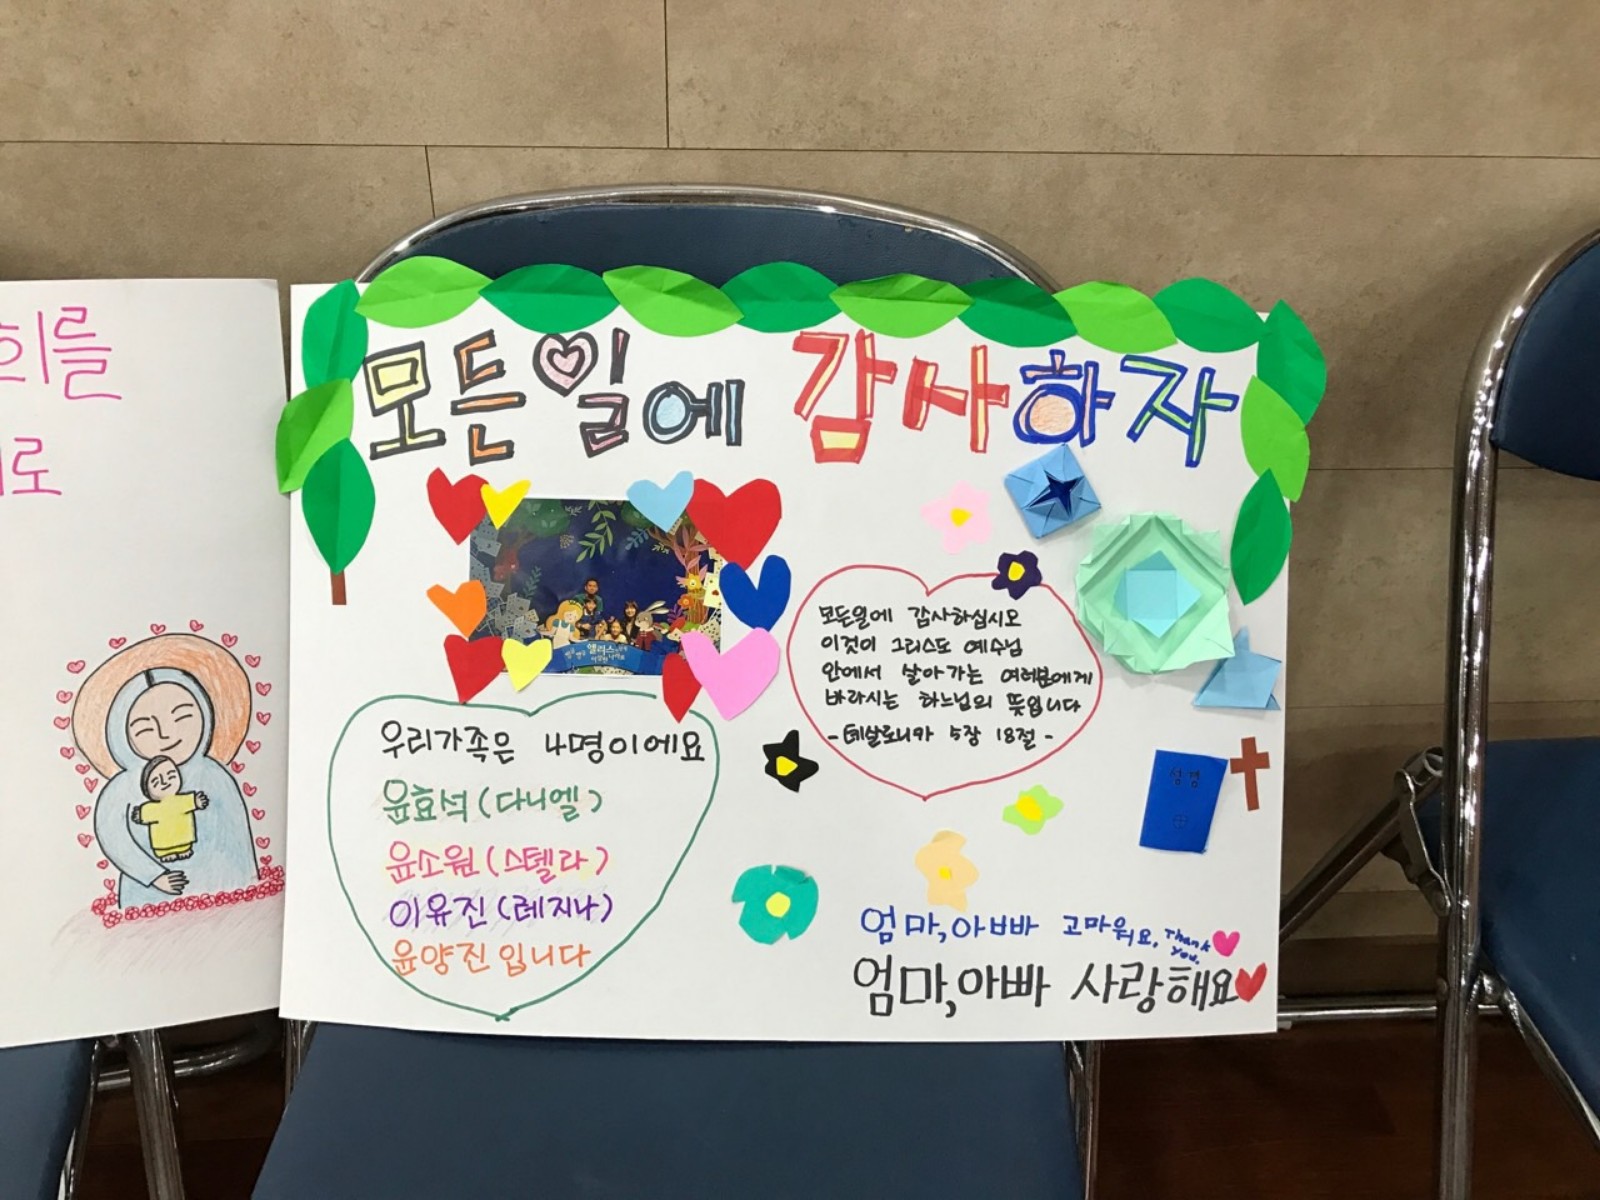 희를
로
모든일에 감사하자
앨리스
모든일에 감사하십시오
이것이 그리스도 예수님
안에서 살아가는 여러분에게
바라시는 하느님의 뜻입니다
-테살로니카 5장 18절-
우리가족은 4명이에요
윤효석(다니엘)
윤소원(스텔라)
이유진(레지나)
윤양진입니다
성경
엄마,아빠 고마워요. Thank
you.
엄마,아빠 사랑해요